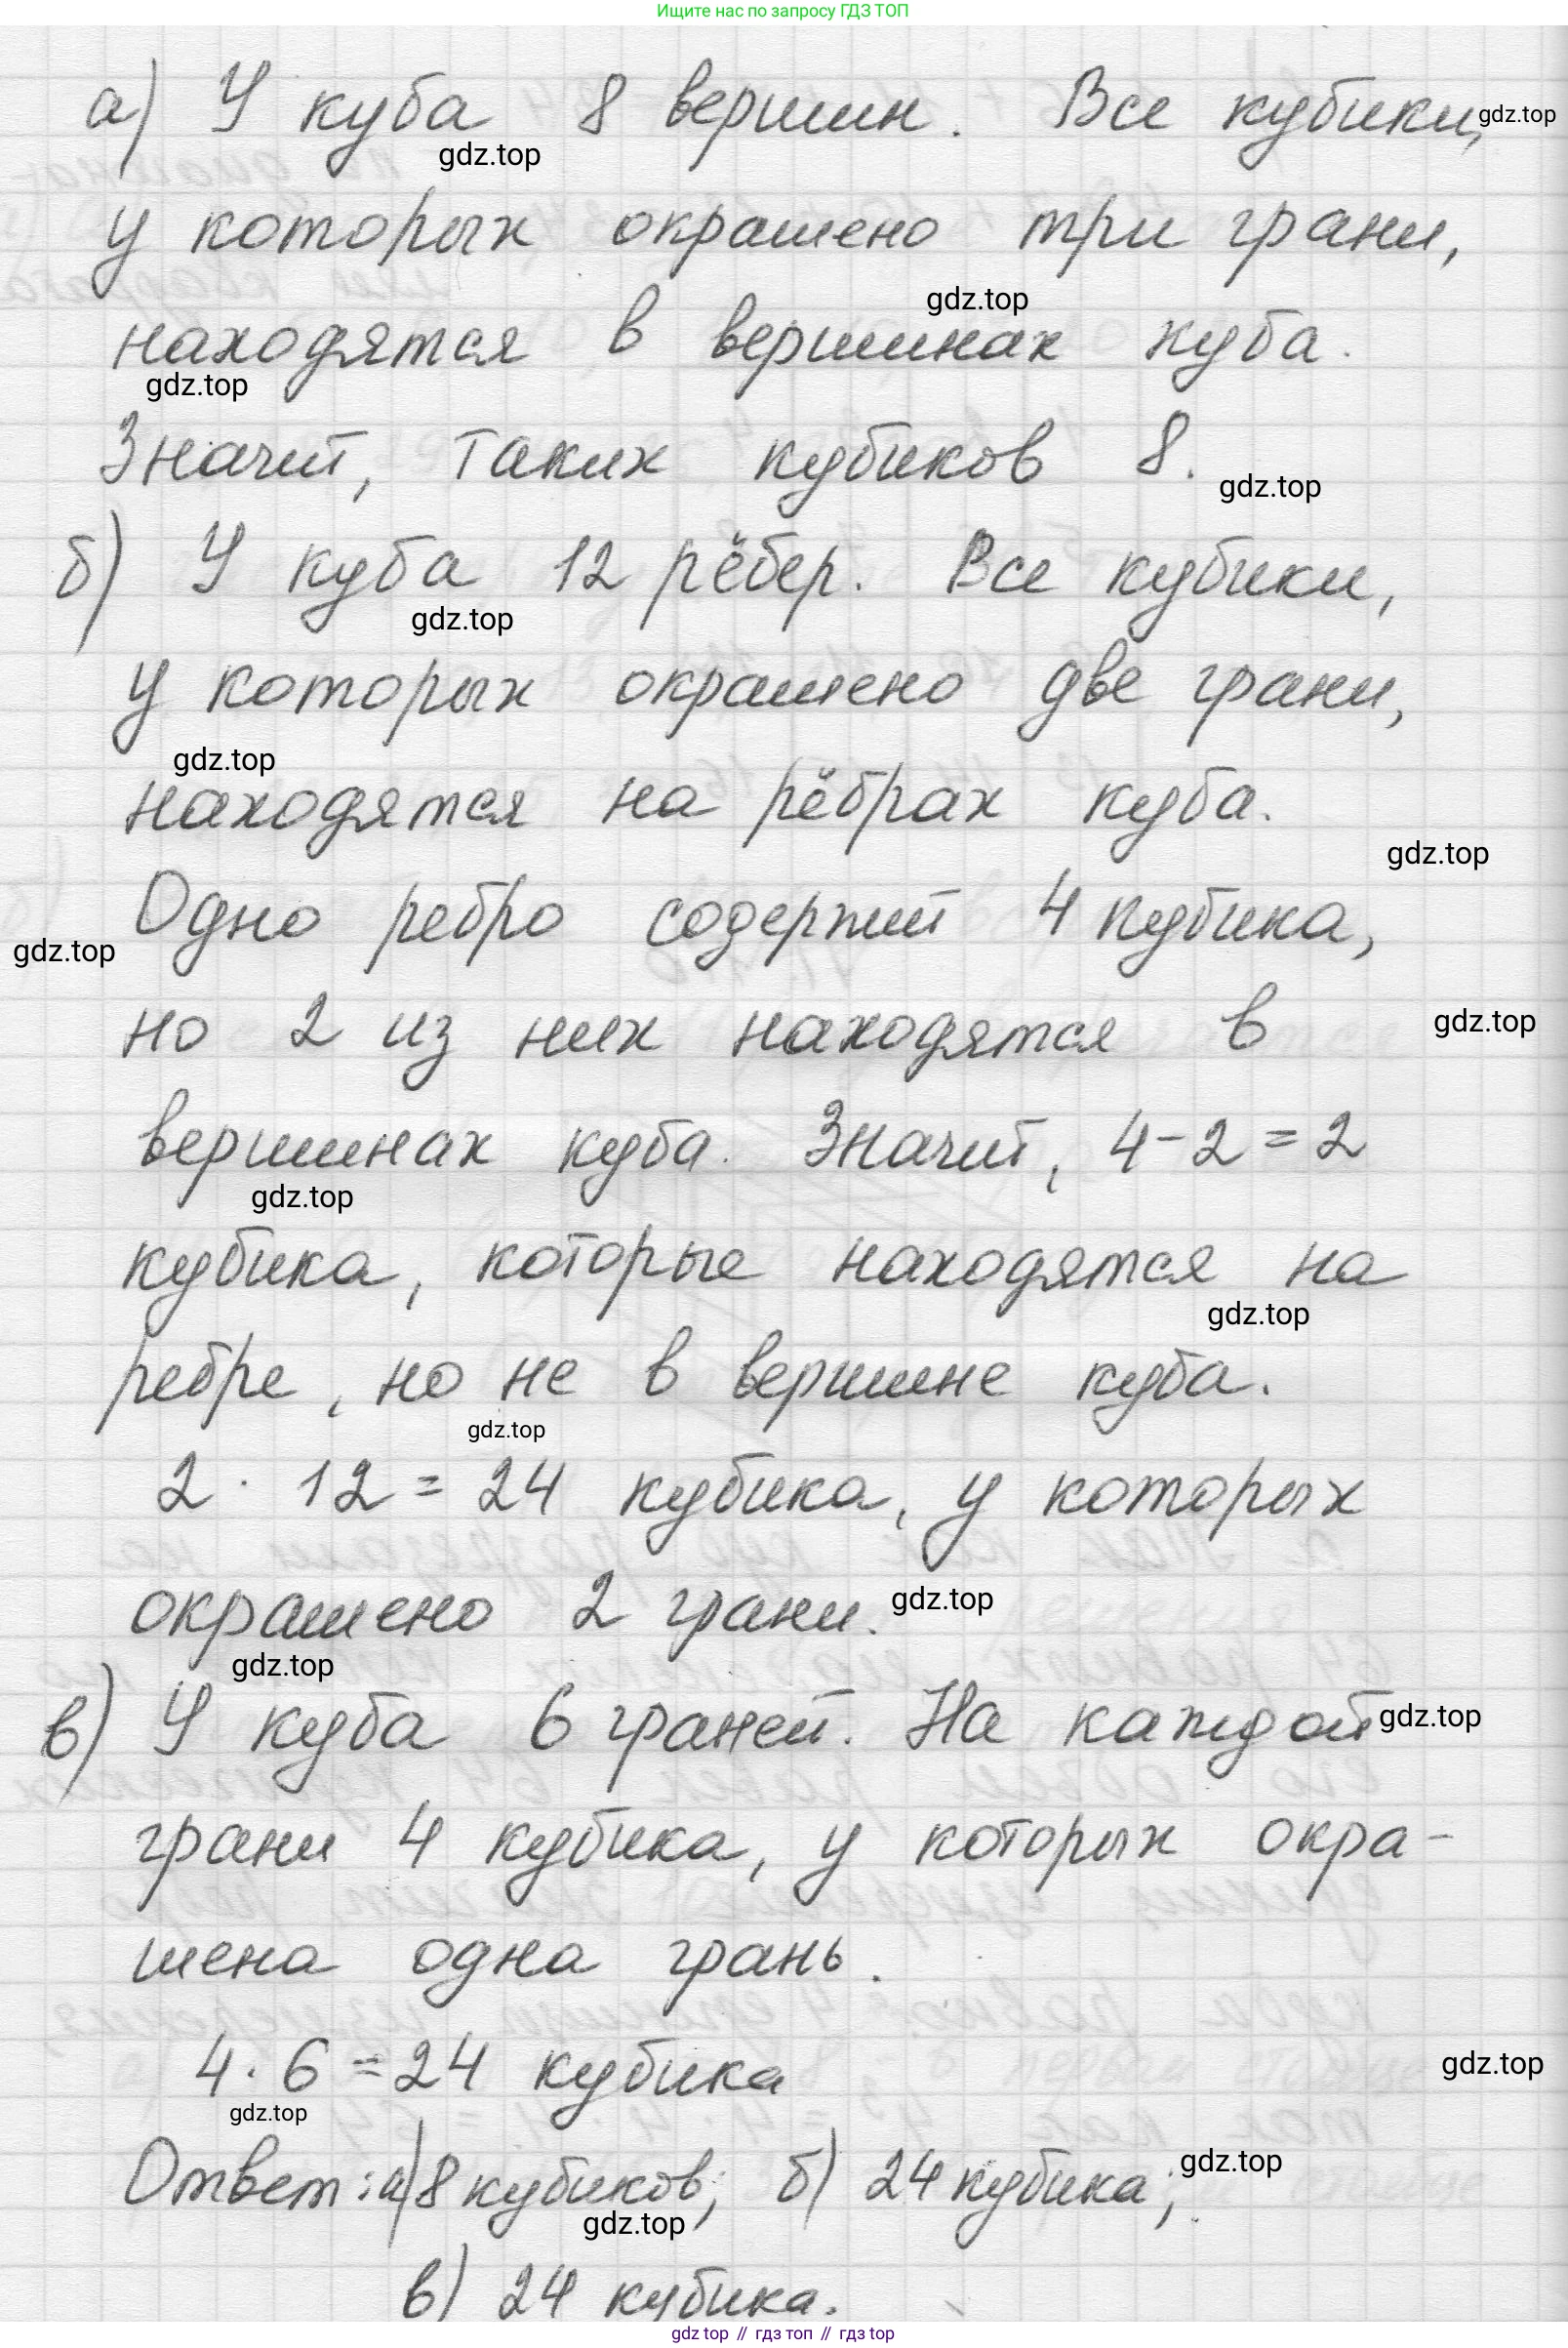 Ищите нас по запросу ГДЗ ТОП
а) У куба 8 вершин. Все кубики, gdz.top
gdz.top
у которых окрашено три грани,
gdz.top
находятся в вершинах куба.
gdz.top
Значит, таких кубиков 8.
gdz.top
б) У куба 12 рёбер. Все кубики,
gdz.top
у которых окрашено две грани,
gdz.top
находятся на рёбрах куба.
gdz.top
Одно ребро содержит 4 кубика,
gdz.top
но 2 из них находятся в gdz.top
вершинах куба. Значит, 4-2=2
gdz.top
кубика, которые находятся на
gdz.top
ребре, но не в вершине куба.
gdz.top
2 · 12 = 24 кубика, у которых
окрашено 2 грани. gdz.top
gdz.top
в) У куба 6 граней. На каждой gdz.top
грани 4 кубика, у которых окра-
шена одна грань.
4 · 6 = 24 кубика gdz.top
gdz.top
Ответ: а) 8 кубиков; б) 24 кубика; gdz.top
gdz.top
в) 24 кубика.
gdz top // гдз топ // гдз top